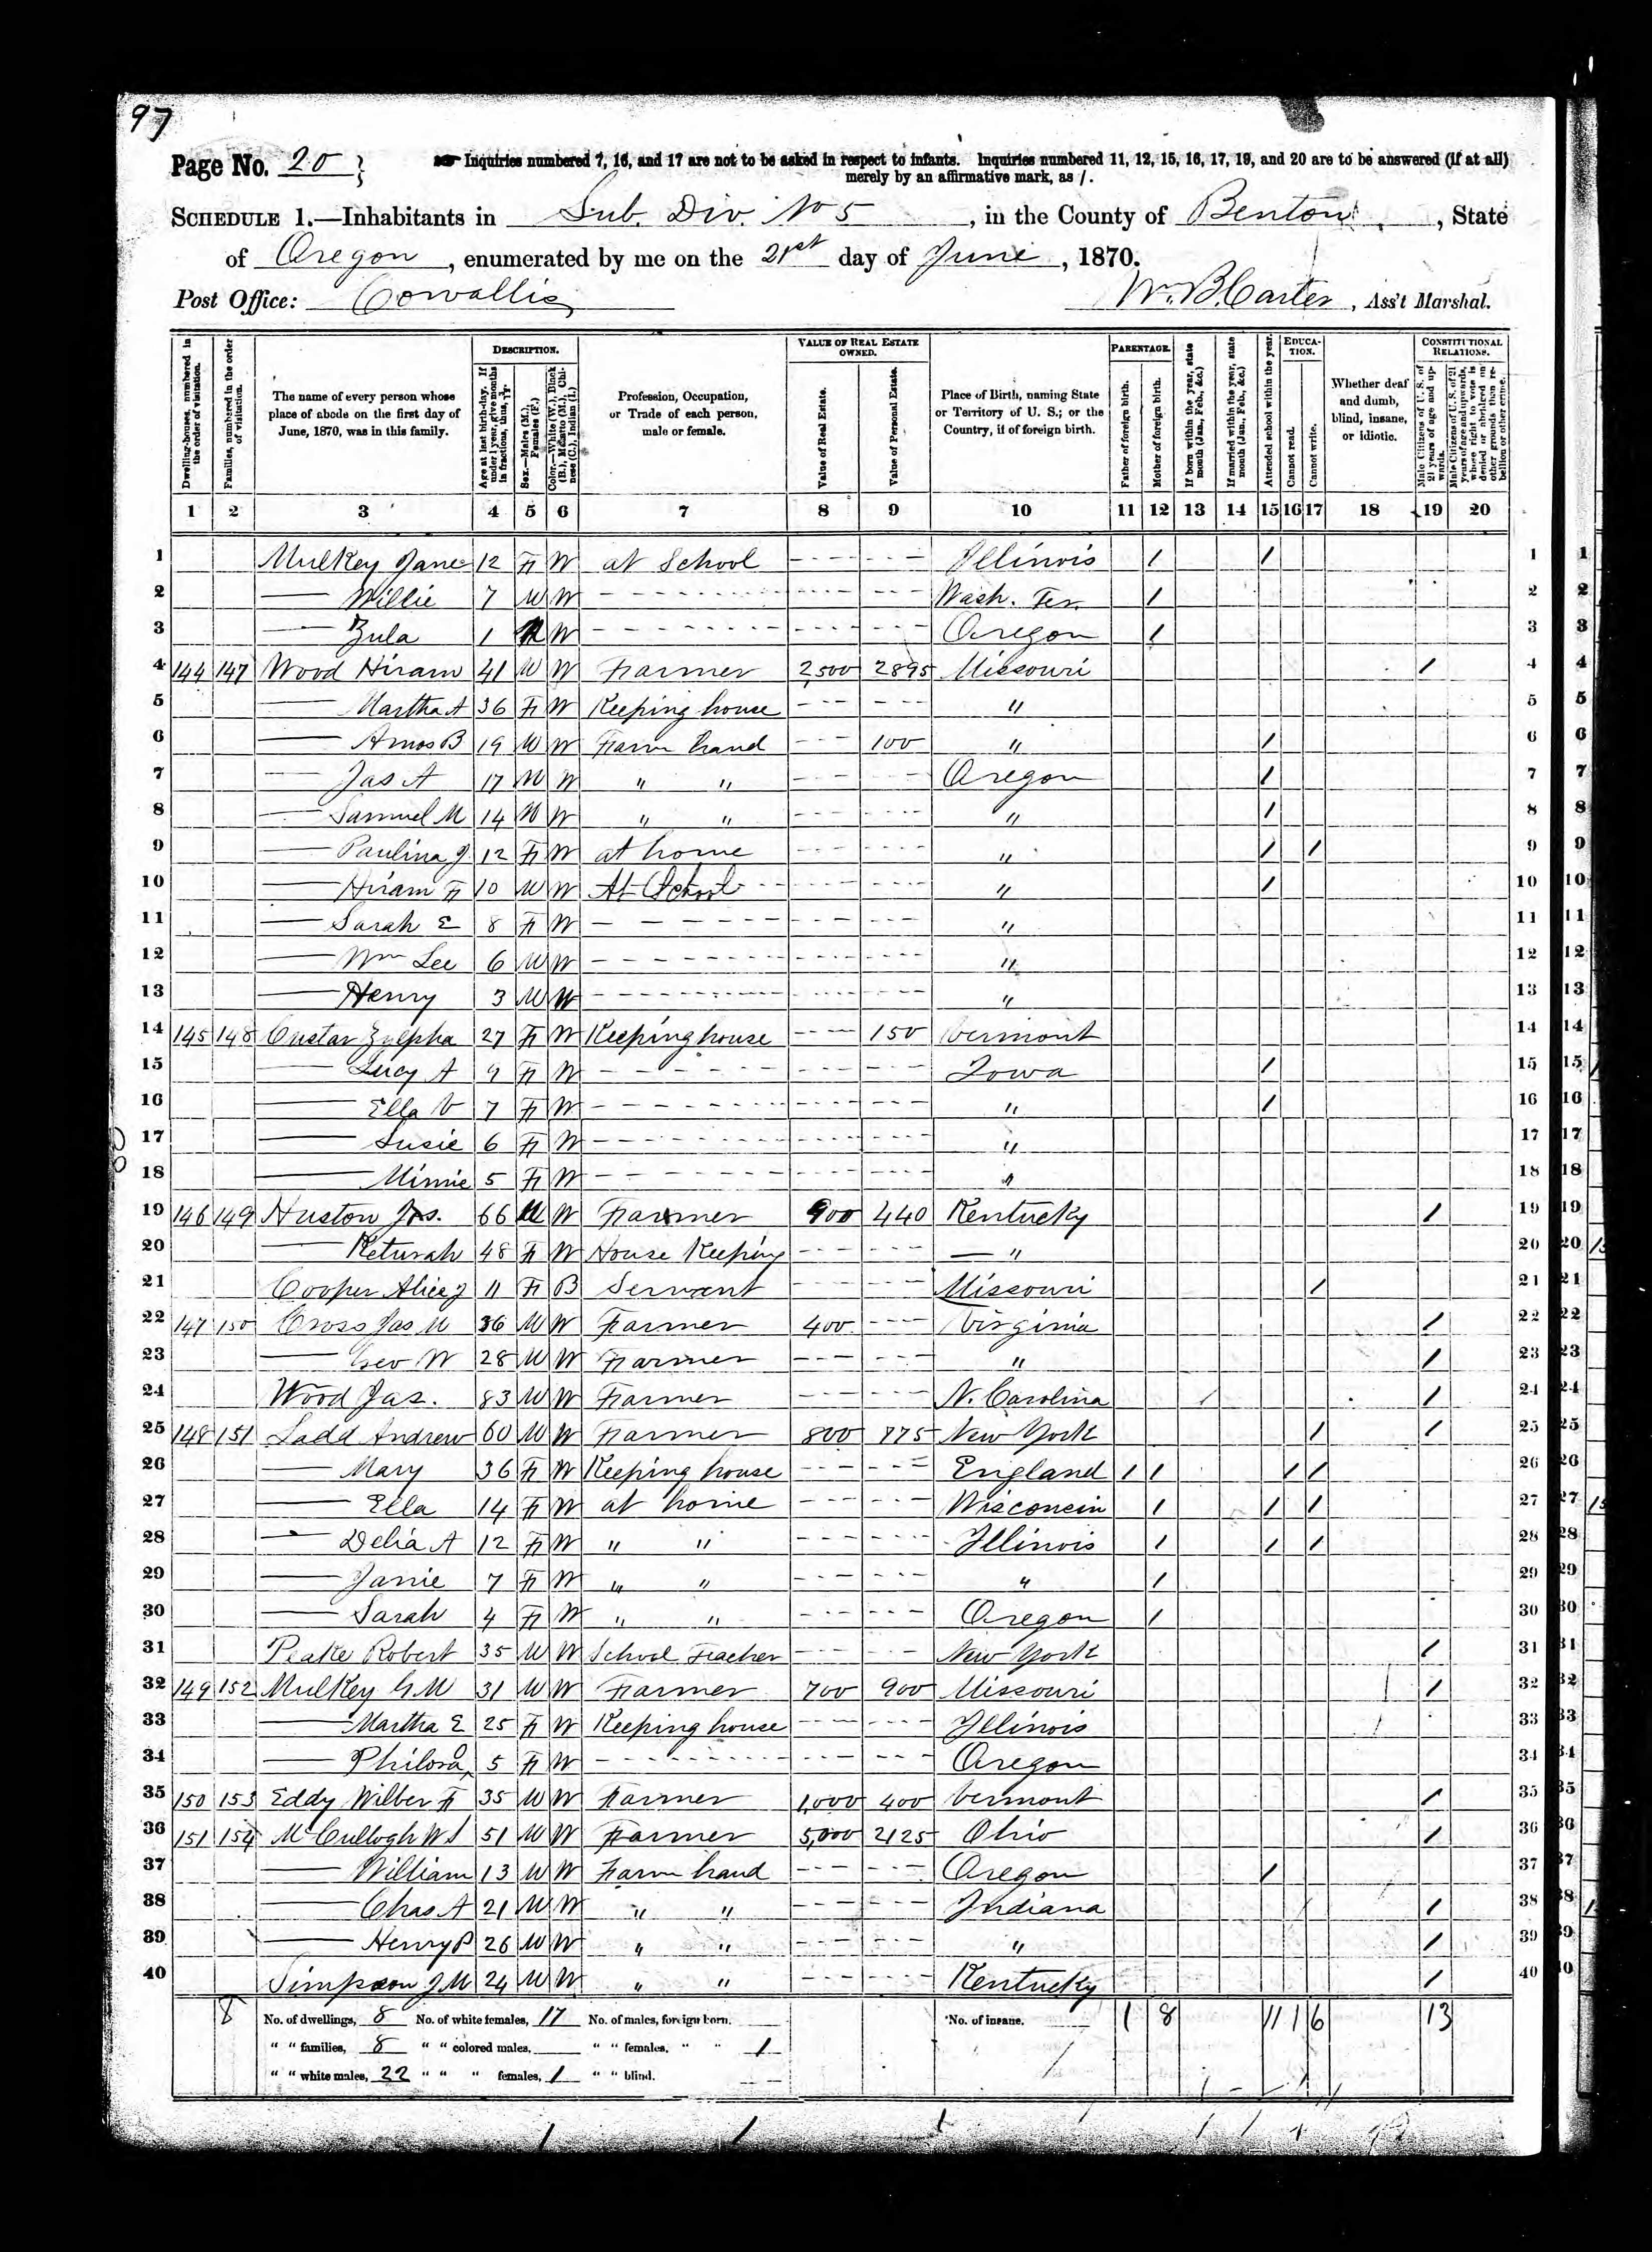 97
Page No. 20
Inquiries numbered 7, 16, and 17 are not to be asked in respect to infants. Inquiries numbered 11, 12, 15, 16, 17, 19, and 20 are to be answered (if at all)
merely by an affirmative mark, as /.
SCHEDULE 1.—Inhabitants in Sub. Div. No 5, in the County of Benton, State
of Oregon, enumerated by me on the 21st day of June, 1870.
Post Office: Corvallis
Wm. B. Carter, Ass't Marshal.
Dwelling-houses, numbered in the order of visitation.
Families, numbered in the order of visitation.
The name of every person whose place of abode on the first day of June, 1870, was in this family.
DESCRIPTION.
Age at last birth-day. If under 1 year, give months in fractions, thus, 3/12.
Sex.—Males (M.), Females (F.)
Color.—White (W.), Black (B.), Mulatto (M.), Chinese (C.), Indian (I.)
Profession, Occupation, or Trade of each person, male or female.
VALUE OF REAL ESTATE OWNED.
Value of Real Estate.
Value of Personal Estate.
Place of Birth, naming State or Territory of U. S.; or the Country, if of foreign birth.
PARENTAGE.
Father of foreign birth.
Mother of foreign birth.
If born within the year, state month (Jan., Feb., &c.)
If married within the year, state month (Jan., Feb., &c.)
Attended school within the year.
EDUCATION.
Cannot read.
Cannot write.
Whether deaf and dumb, blind, insane, or idiotic.
CONSTITUTIONAL RELATIONS.
Male Citizens of U. S. of 21 years of age and upwards.
Male Citizens of U. S. of 21 years of age and upwards, whose right to vote is denied or abridged on other grounds than rebellion or other crime.
1 2 3 4 5 6 7 8 9 10 11 12 13 14 15 16 17 18 19 20
1 Mulkey Jane 12 F W at School Illinois / / 1
2 — Willie 7 M W Wash. Ter. / 2
3 — Zula 1 W Oregon / 3
4 144 147 Wood Hiram 41 M W Farmer 2,500 2895 Missouri / 4
5 — Martha A 36 F W Keeping house " 5
6 — Amos B 19 M W Farm hand 100 " / 6
7 — Jas A 17 M W " " Oregon / 7
8 — Samuel M 14 M W " " " / 8
9 — Paulina J 12 F W at home " / / 9
10 — Hiram F 10 M W At School " / 10
11 — Sarah E 8 F W " 11
12 — Wm Lee 6 M W " 12
13 — Henry 3 M W " 13
14 145 148 Custar Zylpha 27 F W Keeping house 150 Vermont 14
15 — Lucy A 9 F W Iowa / 15
16 — Ella V 7 F W " / 16
17 — Susie 6 F W " 17
18 — Minnie 5 F W " 18
19 146 149 Huston Jas. 66 M W Farmer 900 440 Kentucky / 19
20 — Keturah 48 F W House Keeping — " 20
21 Cooper Alice J 11 F B Servant Missouri / 21
22 147 150 Cross Jas M 36 M W Farmer 400 Virginia / 22
23 — Geo W 28 M W Farmer " / 23
24 Wood Jas. 83 M W Farmer N. Carolina / 24
25 148 151 Ladd Andrew 60 M W Farmer 800 775 New York / / 25
26 — Mary 36 F W Keeping house England / / / / 26
27 — Ella 14 F W at home Wisconsin / / / 27
28 — Delia A 12 F W " " Illinois / / / 28
29 — Janie 7 F W " " " / 29
30 — Sarah 4 F W " " Oregon / 30
31 Peake Robert 35 M W School Teacher New York / 31
32 149 152 Mulkey G M 31 M W Farmer 700 900 Missouri / 32
33 — Martha E 25 F W Keeping house Illinois 33
34 — Philora 5 F W Oregon 34
35 150 153 Eddy Wilber F 35 M W Farmer 1,000 400 Vermont / 35
36 151 154 McCullogh W S 51 M W Farmer 5,000 2125 Ohio / 36
37 — William 13 M W Farm hand Oregon / 37
38 — Chas A 21 M W " " Indiana / 38
39 — Henry P 26 M W " " " / 39
40 Simpson J M 24 M W " " Kentucky / 40
8 No. of dwellings, 8 No. of white females, 17 No. of males, foreign born. No. of insane. 1 8 11 1 6 13
" " families, 8 " " colored males, " " females, " " 1
" " white males, 22 " " " females, 1 " " blind.